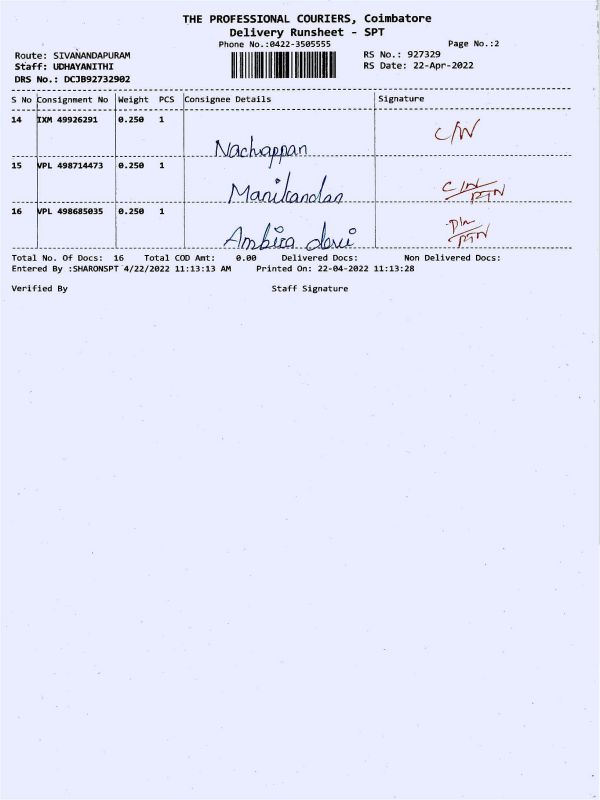 THE PROFESSIONAL COURIERS, Coimbatore
Delivery Runsheet - SPT
Phone No.:0422-3505555
Page No.:2
Route: SIVANANDAPURAM
RS No.: 927329
Staff: UDHAYANITHI
RS Date: 22-Apr-2022
DRS No.: DCJB92732902
S No Consignment No Weight PCS Consignee Details Signature
14 IXM 49926291 0.250 1
Nachiappan C/N
15 VPL 498714473 0.250 1
Manikandan
RTN
16 VPL 498685035 0.250 1
Ambica devi
RTN
Total No. Of Docs: 16 Total COD Amt: 0.00 Delivered Docs: Non Delivered Docs:
Entered By :SHARONSPT 4/22/2022 11:13:13 AM Printed On: 22-04-2022 11:13:28
Verified By Staff Signature